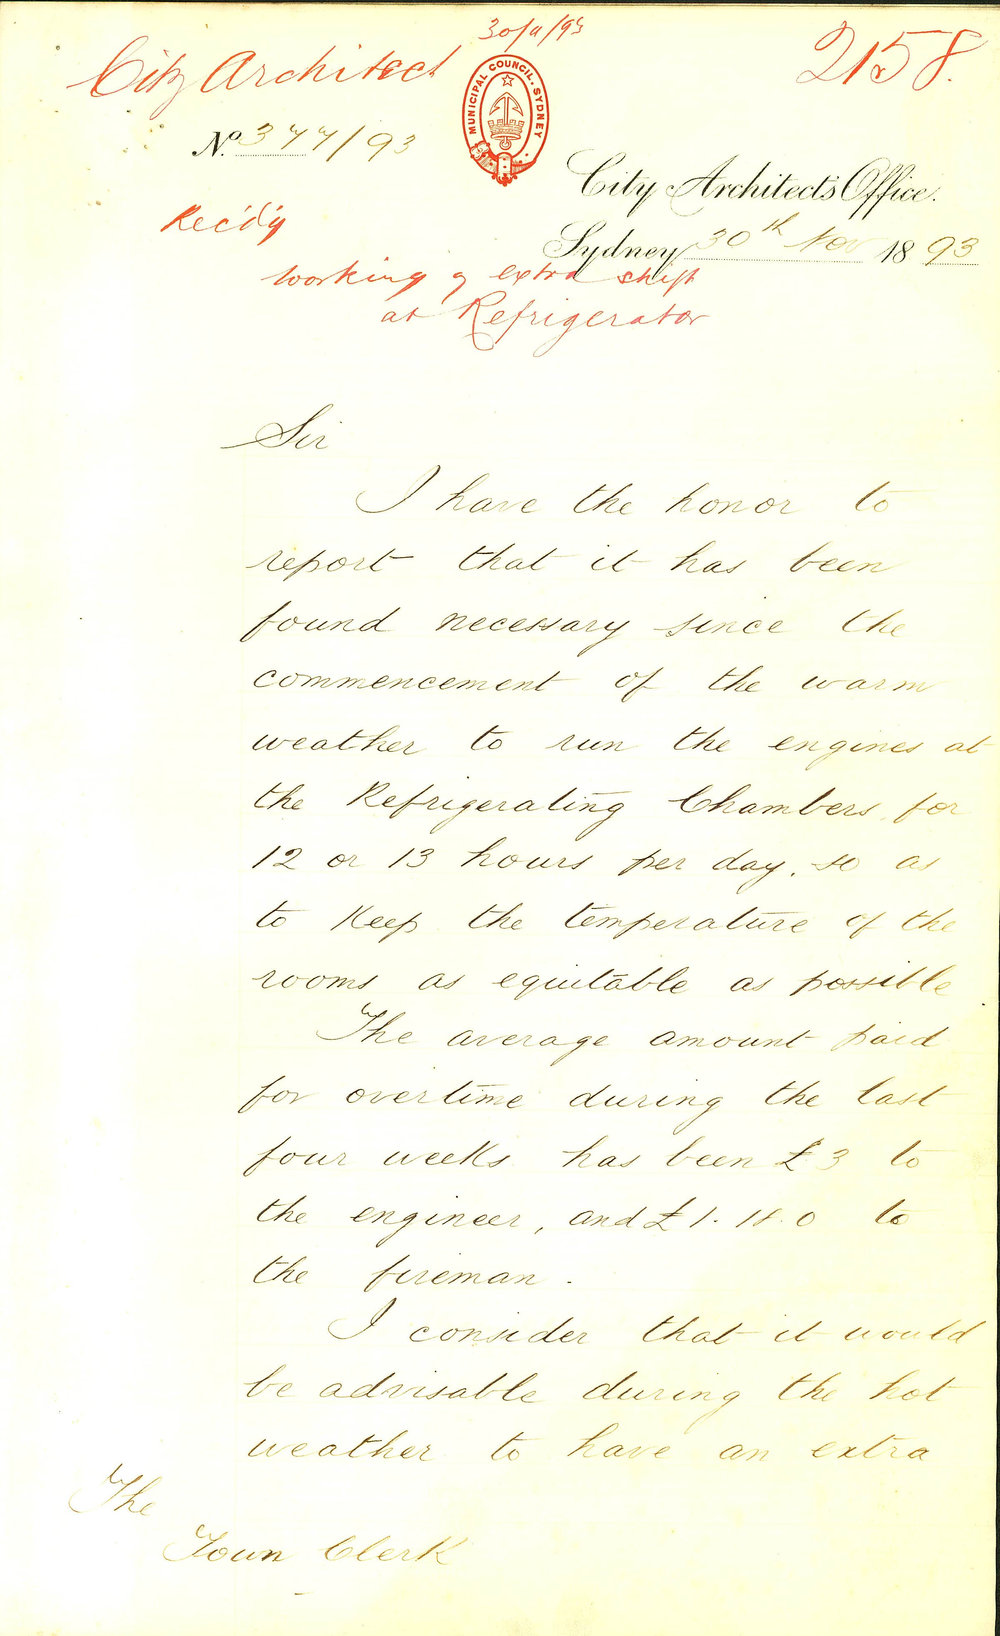 30/11/93
City Architect
2158.
MUNICIPAL COUNCIL. SYDNEY
No. 377/93
City Architect's Office.
Sydney 30th Nov 1893
Rec'd'g
working of extra shift
at Refrigerator
Sir
I have the honor to
report that it has been
found necessary since the
commencement of the warm
weather to run the engines at
the Refrigerating Chambers for
12 or 13 hours per day, so as
to keep the temperature of the
rooms as equitable as possible
The average amount paid
for overtime during the last
four weeks has been £3 to
the engineer, and £1.18.0 to
the fireman.
I consider that it would
be advisable during the hot
weather to have an extra
The
Town Clerk